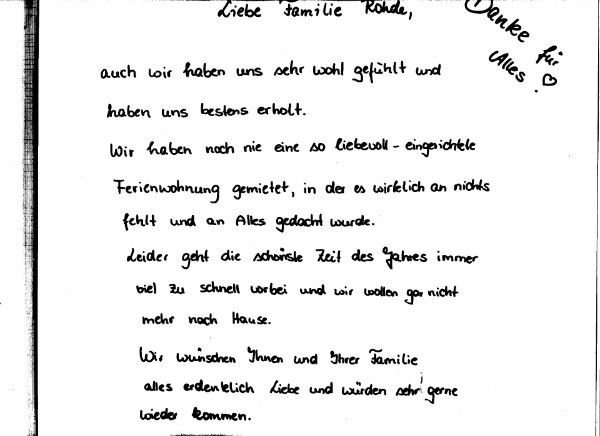 Liebe Familie Rohde,
Danke für
Alles. ♡
auch wir haben uns sehr wohl gefühlt und
haben uns bestens erholt.
Wir haben noch nie eine so liebevoll - eingerichtete
Ferienwohnung gemietet, in der es wirklich an nichts
fehlt und an Alles gedacht wurde.
Leider geht die schönste Zeit des Jahres immer
viel zu schnell vorbei und wir wollen gar nicht
mehr nach Hause.
Wir wünschen Ihnen und Ihrer Familie
alles erdenklich Liebe und würden sehr gerne
wieder kommen.